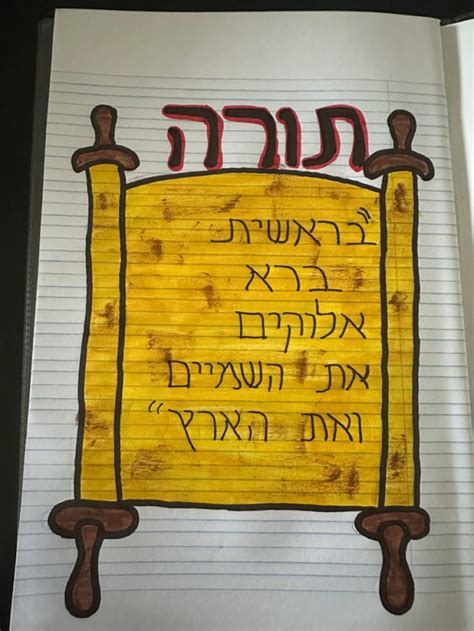 תורה
"בראשית
ברא
אלוקים
את השמיים
ואת הארץ"